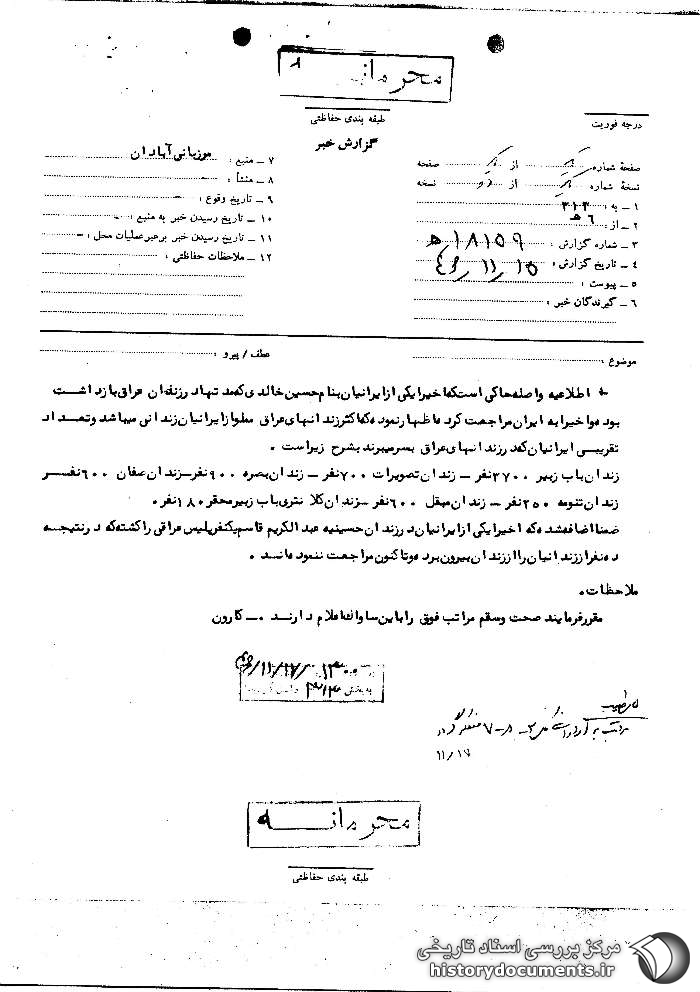 محرمانه
طبقه بندی حفاظتی
درجه فوریت
گزارش خبر
صفحهٔ شماره یک از یک صفحه
نسخهٔ شماره از نسخه
۱ ـ به : ۳۱۲
۲ ـ از : ۶ ه‍
۳ ـ شماره گزارش : ۱۸۱۵۹ / ه‍
۴ ـ تاریخ گزارش : ۱۵ / ۱۱ /
۵ ـ پیوست :
۶ ـ گیرندگان خبر :
۷ ـ منبع : مرزبانی آبادان
۸ ـ منشأ :
۹ ـ تاریخ وقوع :
۱۰ ـ تاریخ رسیدن خبر به منبع : -
۱۱ ـ تاریخ رسیدن خبر برهبرعملیات محل : -
۱۲ ـ ملاحظات حفاظتی :
موضوع :
عطف / پیرو :
اطلاعیه واصله حاکی است که اخیرا یکی از ایرانیان بنام حسین خالدی که مدتها در زندان عراق بازداشت
بوده و اخیرا به ایران مراجعت کرده اظهار نموده که اکثر زندانهای عراق مملو از ایرانیان زندانی میباشد و تعداد
تقریبی ایرانیان که در زندانهای عراق بسر میبرند بشرح زیر است .
زندان باب زبیر ۳۷۰۰ نفر - زندان تصویرات ۷۰۰ نفر - زندان بصره ۹۰۰ نفر - زندان صفان ۶۰۰ نفر
زندان تنومه ۲۵۰ نفر - زندان مبقل ۶۰۰ نفر - زندان کلانتری باب زبیر محقر ۱۸۰ نفر .
ضمنا اضافه شده که اخیرا یکی از ایرانیان در زندان حسینیه عبدالکریم قاسم یکنفر پلیس عراقی را کشته که در نتیجه
ده نفر از زندانیان را از زندان بیرون برده و تاکنون مراجعت ننموده اند .
ملاحظات .
مقرر فرمایند صحت و سقم مراتب فوق را باین ساواک اعلام دارند . - کارون
۱۱/۱۷
به بخش ۳۱۲
۱۱/۱۷
محرمانه
طبقه بندی حفاظتی
مرکز بررسی اسناد تاریخی
historydocuments.ir